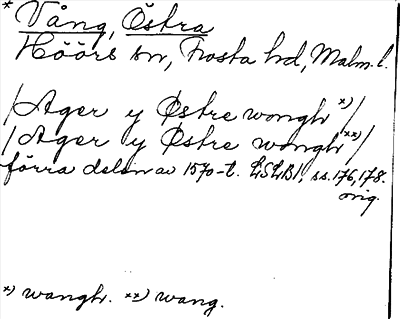 * Vång, Östra
Höörs sn, Frosta hd, Malm. l.
/Ager y Østre wongh *)/
/Ager y Østre wongh **)/
förra delen av 1570-t. LSLB1, ss. 176, 178.
orig.
*) wanghr. **) wang.